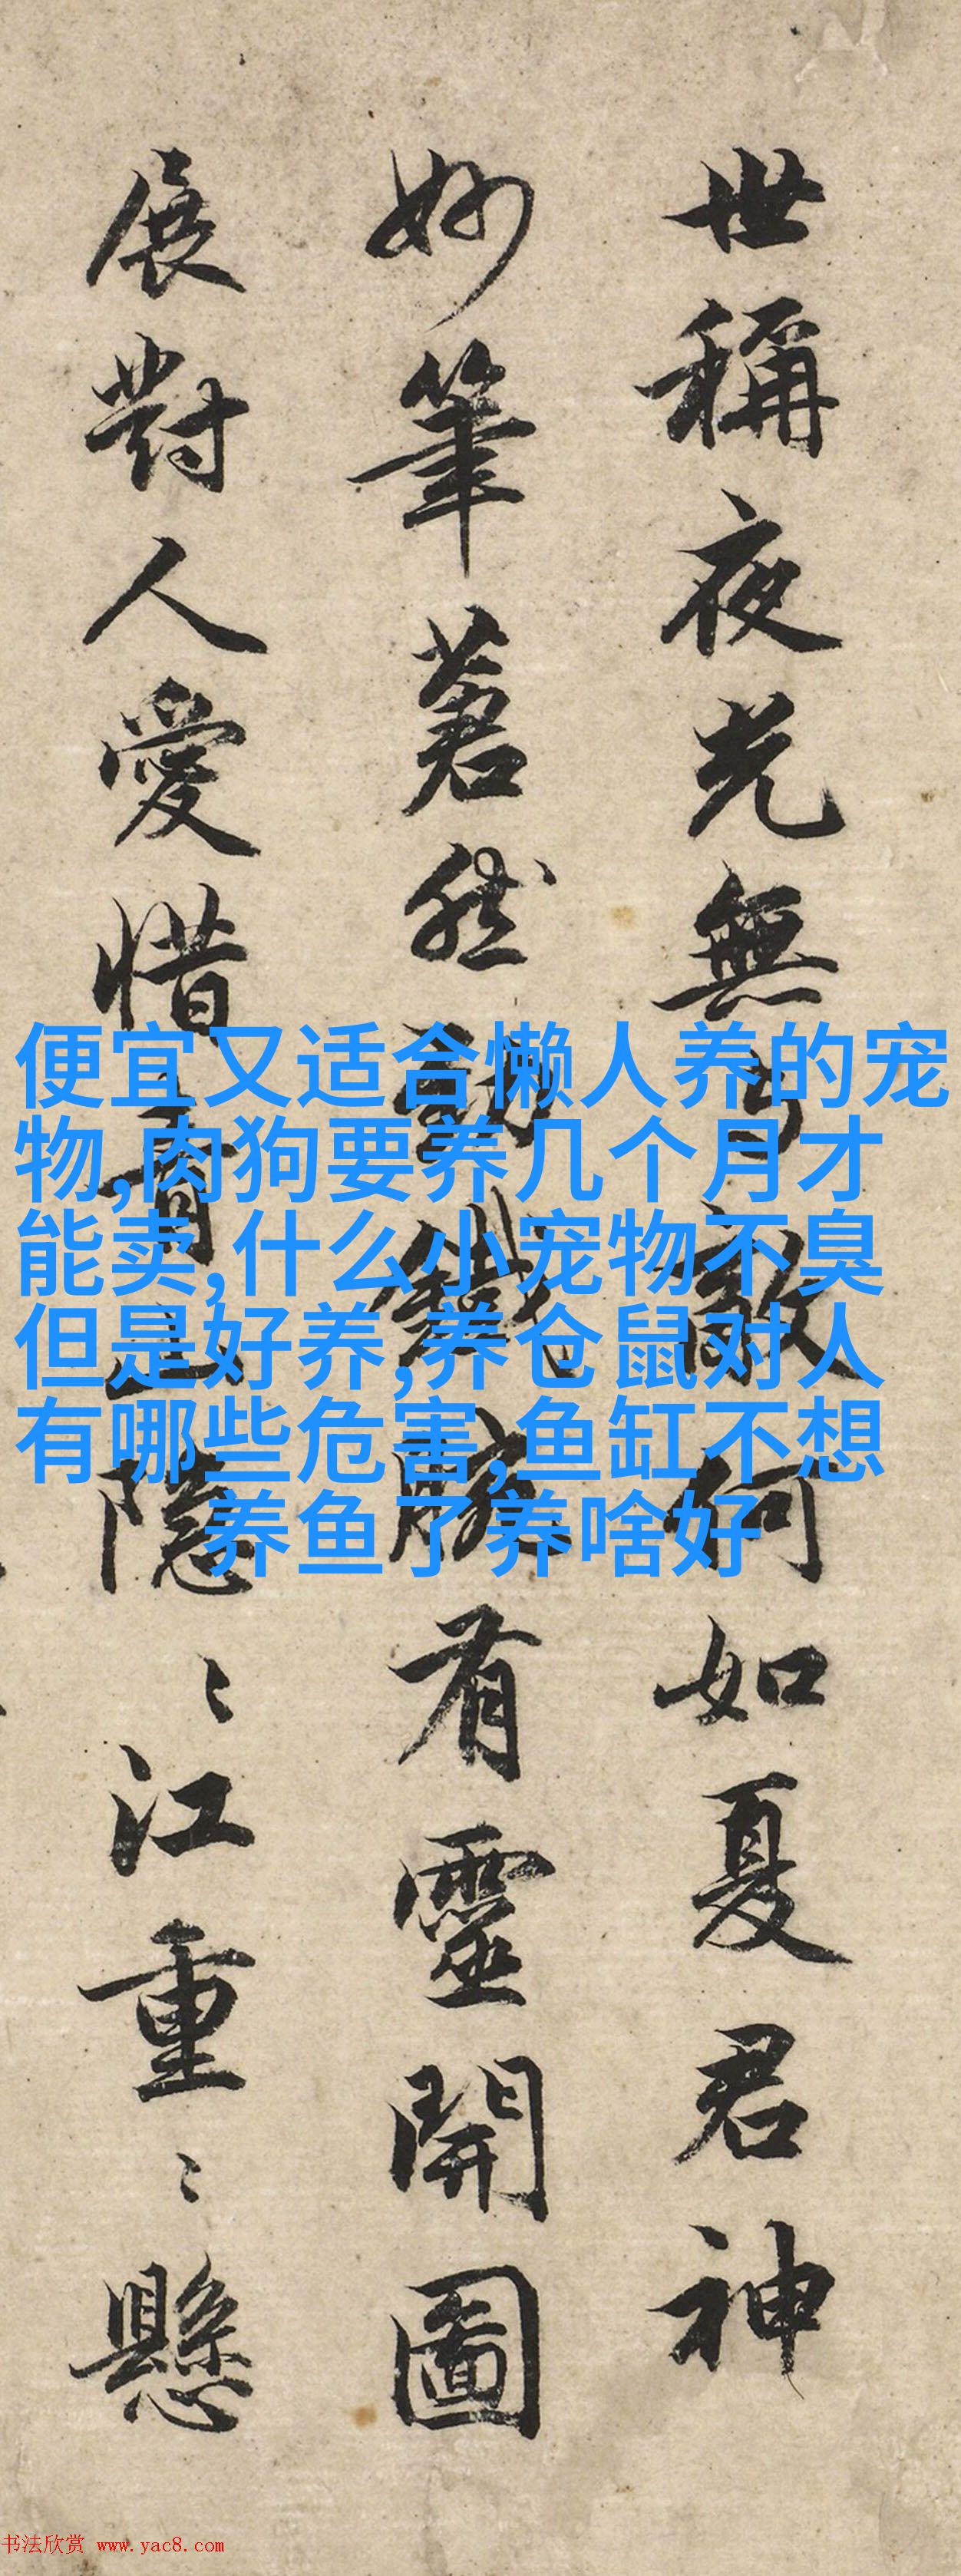 世稱夜光無
敵何如夏君神
妙筆著然
腕有靈開圖
展對人愛惜
隱〻江重〻懸
便宜又适合懒人养的宠
物,肉狗要养几个月才
能卖,什么小宠物不臭
但是好养,养仓鼠对人
有哪些危害,鱼缸不想
养鱼了养啥好
书法欣赏 www.yac8.com